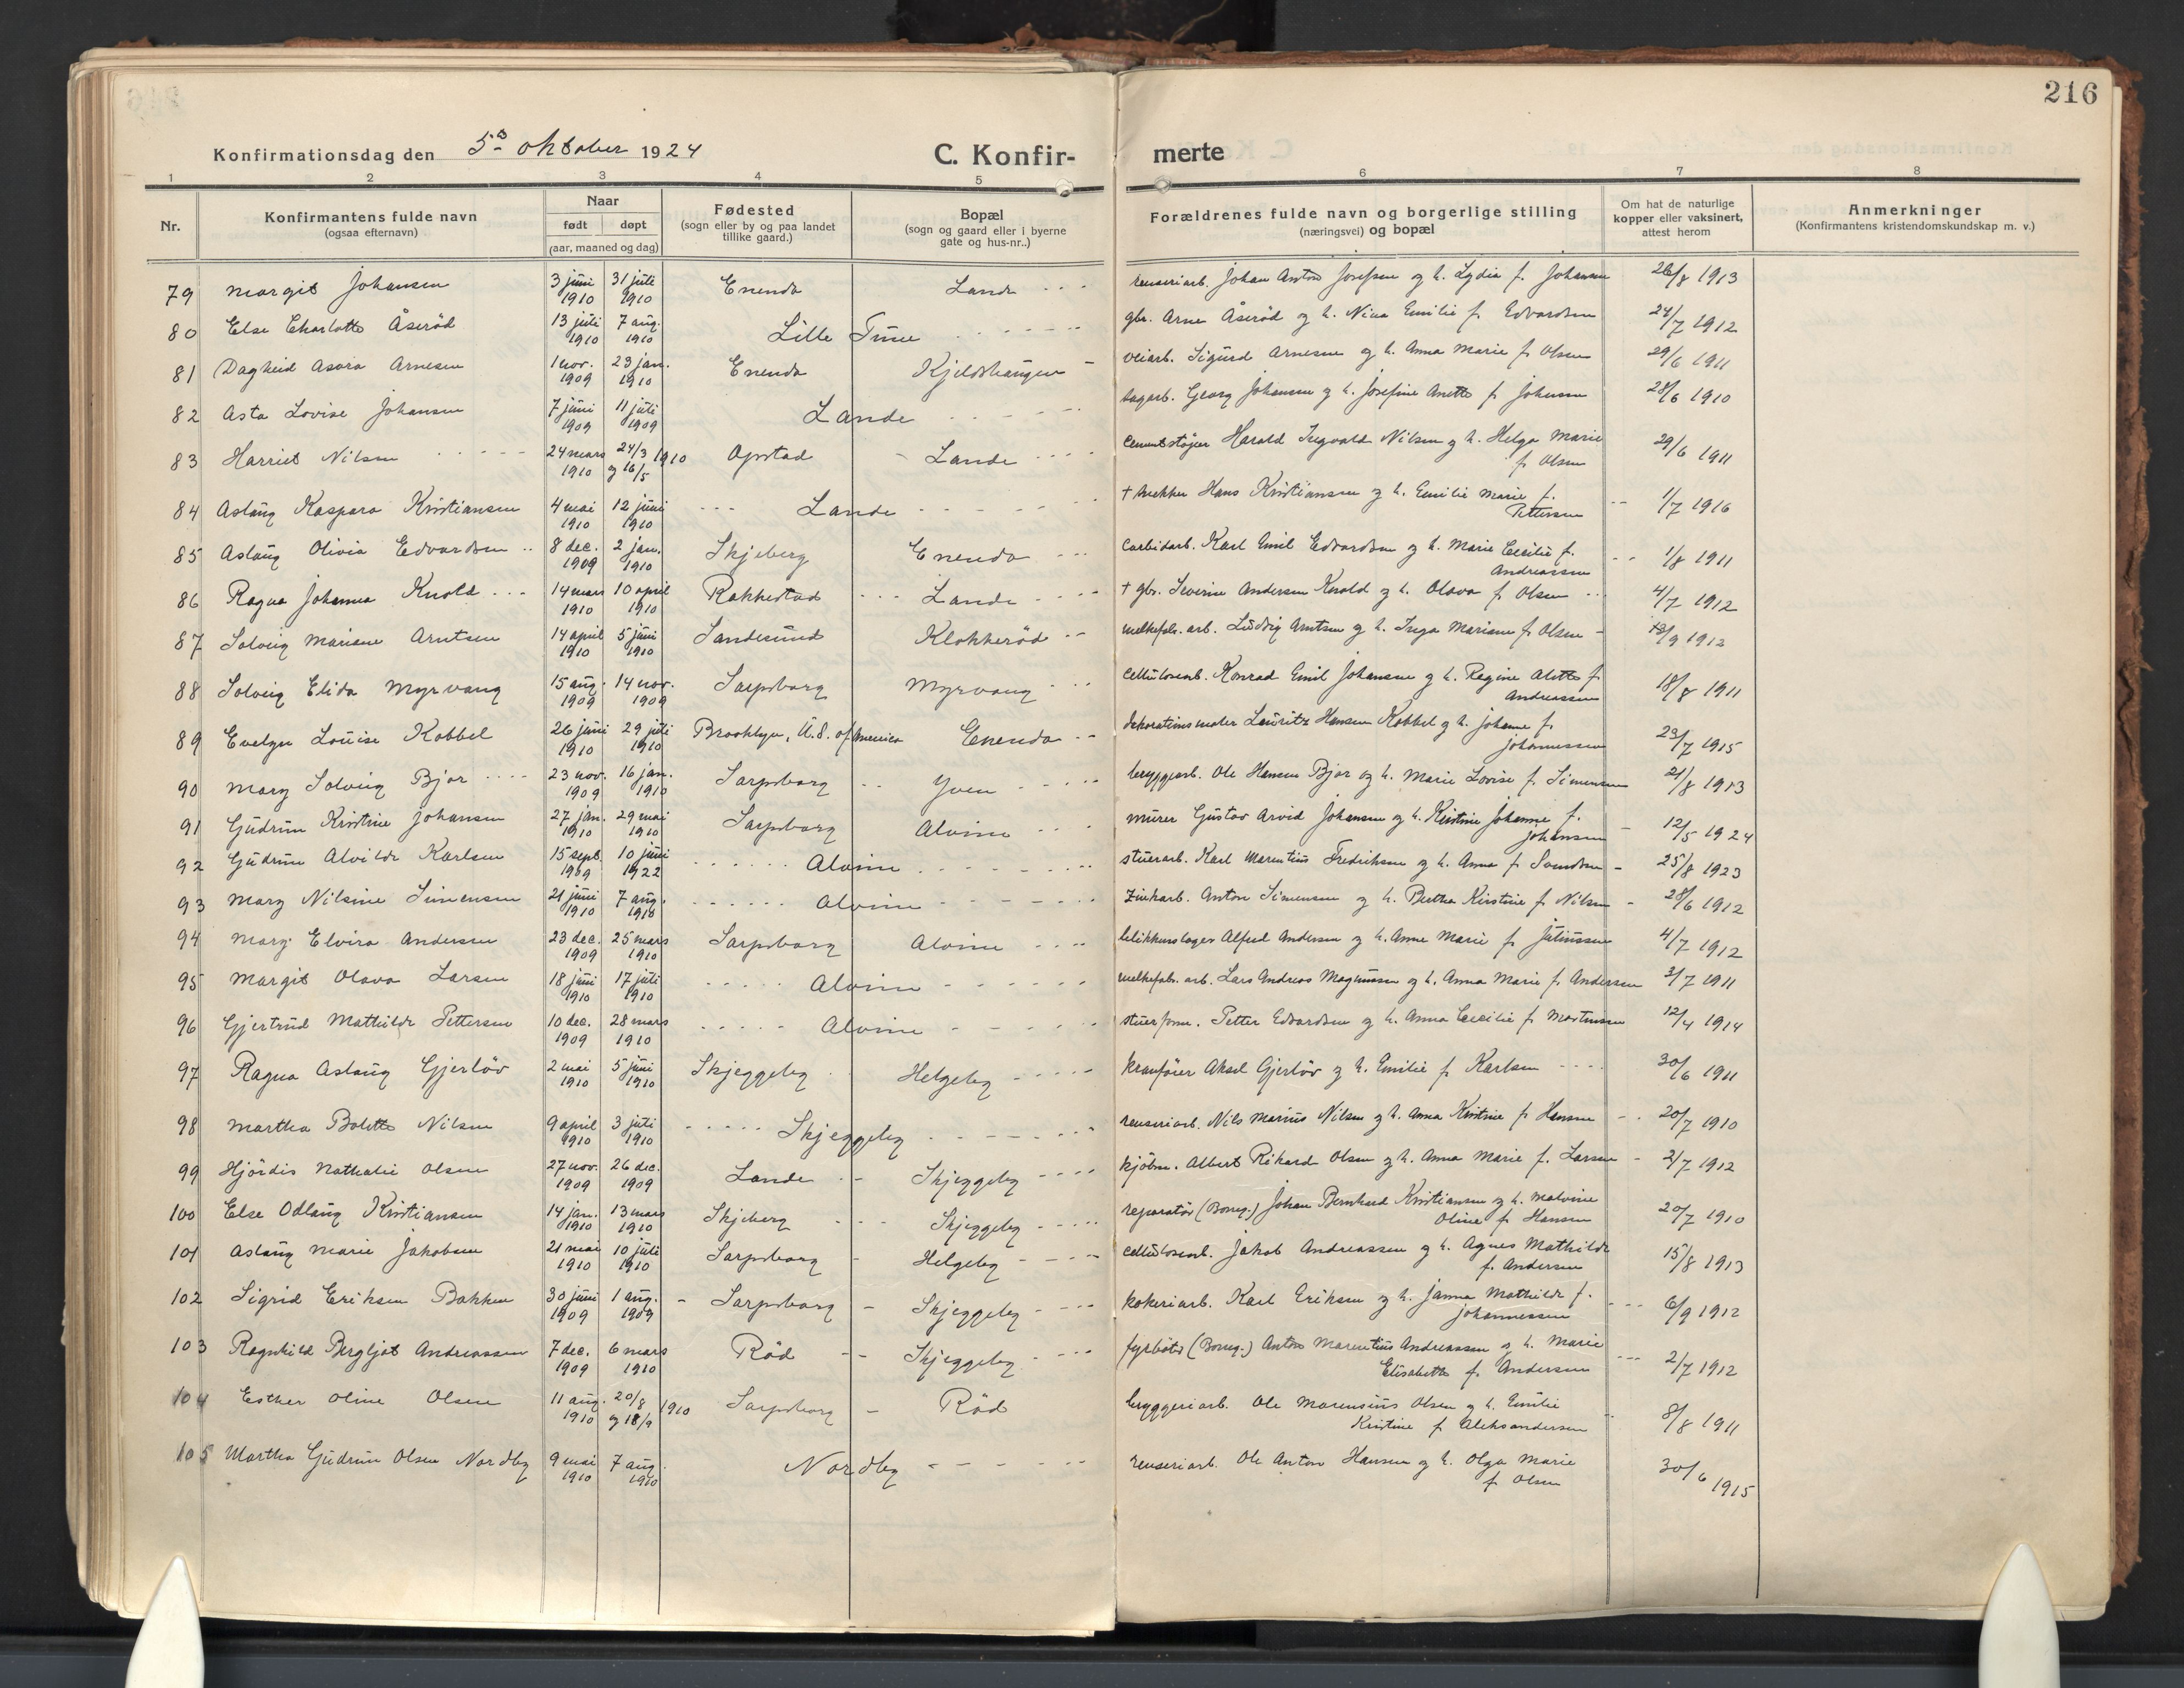 216
Konfirmationsdag den 5te oktober 1924
C. Konfir-
merte
1 2 3 4 5 6 7 8
Nr.
Konfirmantens fulde navn
(ogsaa efternavn)
Naar
født døpt
(aar, maaned og dag)
Fødested
(sogn eller by og paa landet
tillike gaard.)
Bopæl
(sogn og gaard eller i byerne
gate og hus-nr..)
Forældrenes fulde navn og borgerlige stilling
(næringsvei) og bopæl
Om hat de naturlige
kopper eller vaksinert,
attest herom
Anmerkninger
(Konfirmantens kristendomskundskap m. v.)
79 Margit Johansen 3 juni 1910 31 juli 1910 Enenda Lande renseriarb. Johan Anton Josefsen og h. Lydia f. Johansen 26/8 1913
80 Else Charlotte Åserød 13 juli 1910 7 aug. 1910 Lille Tune gbr. Arne Åserød og h. Nina Emilie f. Edvardsen 24/7 1912
81 Dagheid Asora Arnesen 1 nov. 1909 23 jan. 1910 Enenda Kjeldshaugen veiarb. Sigurd Arnesen og h. Anna Marie f. Olsen 29/6 1911
82 Asta Lovise Johansen 7 juni 1909 11 juli 1909 Lande sagarb. Georg Johansen og h. Josefine Anette f. Johansen 28/6 1910
83 Harriet Nilsen 24 mars 1910 24/3 og 16/5 1910 Opstad Lande cementstøper Harald Ingvald Nilsen og h. Helga Marie
f. Olsen 29/6 1911
84 Aslaug Kaspara Kristiansen 4 mai 1910 12 juni 1910 Lande † Hans Kristiansen og h. Emilie Marie f.
Pettersen 1/7 1916
85 Aslaug Olivia Edvardsen 8 dec. 1909 2 jan. 1910 Skjeberg Enenda carbidarb. Karl Emil Edvardsen og h. Marie Cecilie f.
Andreassen 1/8 1911
86 Ragna Johanna Knold 14 mars 1910 10 april 1910 Rakkestad Lande † gbr. Severine Andersen Knold og h. Olava f. Olsen 4/7 1912
87 Solveig Mariane Arntsen 14 april 1910 5 juni 1910 Sandesund Klokkerød melkefabr. arb. Ludvig Arntsen og h. Inga Mariane f. Olsen 13/9 1912
88 Solveig Elida Myrvang 15 aug. 1909 14 nov. 1909 Sarpsborg Myrvang cellulosearb. Konrad Emil Johansen og h. Regine Alette f.
Andreassen 18/8 1911
89 Evelyn Louise Kobbel 26 juni 1910 29 juli 1910 Brooklyn, U.S. of America Enenda dekorationsmaler Lauritz Hansen Kobbel og h. Johanne f.
Johannessen 23/7 1915
90 Mary Solveig Bjor 23 nov. 1909 16 jan. 1910 Sarpsborg Yven bryggearb. Ole Hansen Bjor og h. Marie Lovise f. Simensen 21/8 1913
91 Gudrun Kristine Johansen 27 jan. 1910 29 mai 1910 Sarpsborg Alvim murer Gustav Arvid Johansen og h. Kristine Johanne f.
Johansen 12/5 1924
92 Gudrun Alvilde Karlsen 15 sept. 1909 10 juni 1922 Alvim stuerarb. Karl Marentius Fredriksen og h. Anna f. Svendsen 25/8 1923
93 Mary Nilsine Simensen 21 juni 1910 7 aug. 1910 Alvim zinkarb. Anton Simensen og h. Berthe Kirstine f. Nilsen 28/6 1912
94 Mary Elvira Andersen 23 dec. 1909 25 mars 1910 Sarpsborg Alvim blikkenslager Alfred Andersen og h. Anne Marie f. Juliussen 4/7 1912
95 Margit Olava Larsen 18 juni 1910 17 juli 1910 Alvim melkefabr. arb. Lars Andreas Magnussen og h. Anna Marie f. Andersen 3/7 1911
96 Gjertrud Mathilde Pettersen 10 dec. 1909 28 mars 1910 Alvim stuerform. Petter Edvardsen og h. Anna Cecilie f. Martinsen 12/4 1914
97 Ragna Aslaug Gjerløv 2 mai 1910 5 juni 1910 Skjeggeby Helgeby kranfører Aksel Gjerløv og h. Emilie f. Karlsen 30/6 1911
98 Martha Bolette Nilsen 9 april 1910 3 juli 1910 Skjeggeby renseriarb. Nils Marius Nilsen og h. Anna Kristine f. Hansen 20/7 1910
99 Hjørdis Nathalie Olsen 27 nov. 1909 26 dec. 1909 Lande Skjeggeby kjøbm. Albert Rikard Olsen og h. Anna Marie f. Larsen 2/7 1912
100 Else Odlaug Kristiansen 14 jan. 1910 13 mars 1910 Skjeberg Skjeggeby reparatør (Borreg.) Johan Bernhard Kristiansen og h. Malvine
Oline f. Hansen 20/7 1910
101 Aslaug Marie Jakobsen 21 mai 1910 10 juli 1910 Sarpsborg Helgeby cellulosearb. Jakob Andreassen og h. Agnes Mathilde
f. Andersen 15/8 1913
102 Sigrid Eriksen Bakken 30 juni 1909 1 aug. 1909 Sarpsborg Skjeggeby kokeriarb. Karl Eriksen og h. Janna Mathilde f.
Johannessen 6/9 1912
103 Ragnhild Bergljot Andreassen 7 dec. 1909 6 mars 1910 Rød Skjeggeby fyrbøter (Borreg.) Anton Marentius Andreassen og h. Marie
Elisabeth f. Andersen 2/7 1912
104 Esther Oline Olsen 11 aug. 1910 20/8 og 18/9 1910 Sarpsborg Rød bryggeriarb. Ole Marensius Olsen og h. Emilie
Kristine f. Aleksandersen 8/8 1911
105 Martha Gudrun Olsen Nordby 9 mai 1910 7 aug. 1910 Nordby renseriarb. Ole Anton Hansen og h. Olga Marie
f. Olsen 30/6 1915